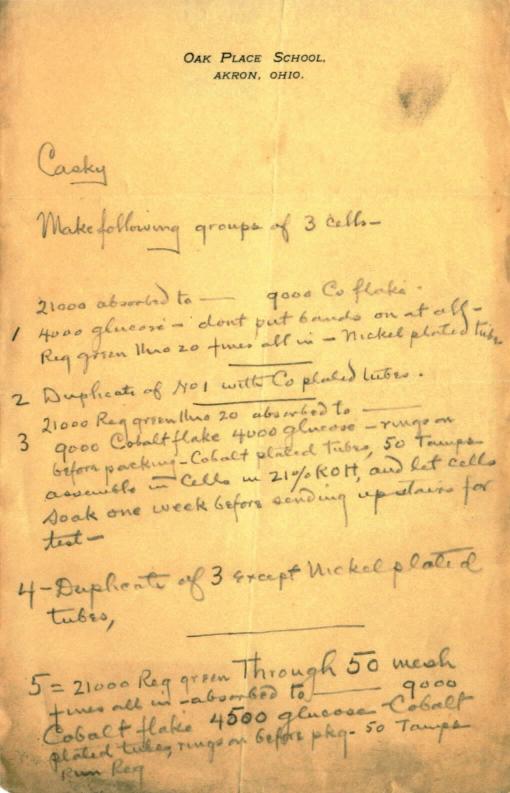 OAK PLACE SCHOOL,
AKRON, OHIO.
Casky
Make following groups of 3 cells—
21000 absorbed to — 9000 Co flake.
1 4000 glucose — dont put bands on at all—
Reg green thro 20 fines all in — Nickel plated tubes
2 Duplicate of No 1 with Co plated tubes.
21000 Reg green thro 20 absorbed to —
3 9000 Cobalt flake 4000 glucose — rings on
before packing — Cobalt plated tubes, 50 Tamps
assemble in cells in 21% KOH, and let cells
soak one week before sending upstairs for
test—
4 — Duplicate of 3 except Nickel plated
tubes,
5 = 21000 Reg green Through 50 mesh
fines all in — absorbed to — 9000
Cobalt flake 4500 glucose Cobalt
plated tubes, rings on before pkg — 50 Tamps
Run Reg